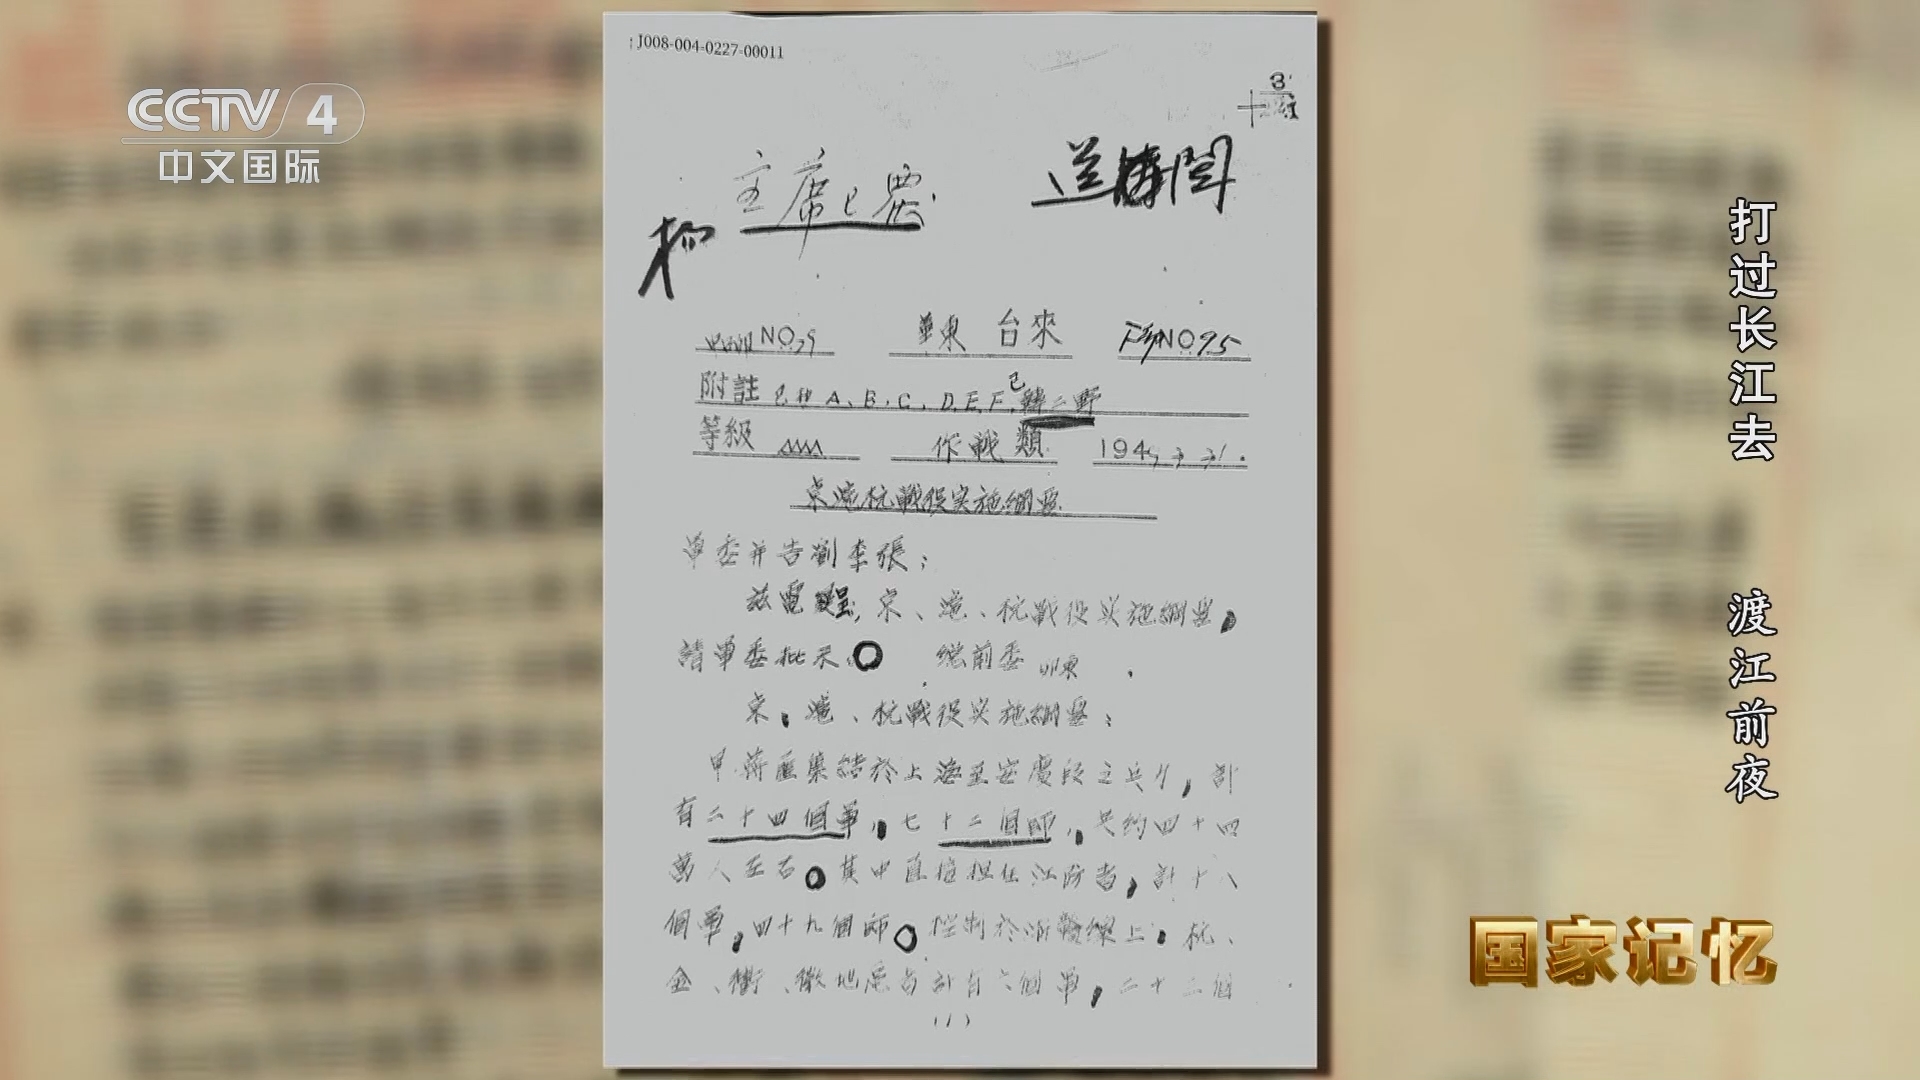 J008-004-0227-00011
CCTV 4
中文国际
3
主席已嬰
閏
NO 華東 台來 NO95
附註 A、B、C、D、E、F、已轉二野
等級 AAAA 作戰類 194
京滬杭戰役实施綱要
軍委并告劉李張：
兹電呈京、滬、杭戰役实施綱要，
請軍委批示。 總前委 卯東
京、滬、杭戰役实施綱要：
甲蔣匪集結於上海至安慶段之兵力，計
有二十四個軍，七十二個師，共約四十四
萬人左右。其中直接担任江防者，計十八
個軍，四十九個師。控制於浙贛線上，杭、
金、衢、徽地區者計有六個軍，二十三個
(1)
打过长江去 渡江前夜
国家记忆